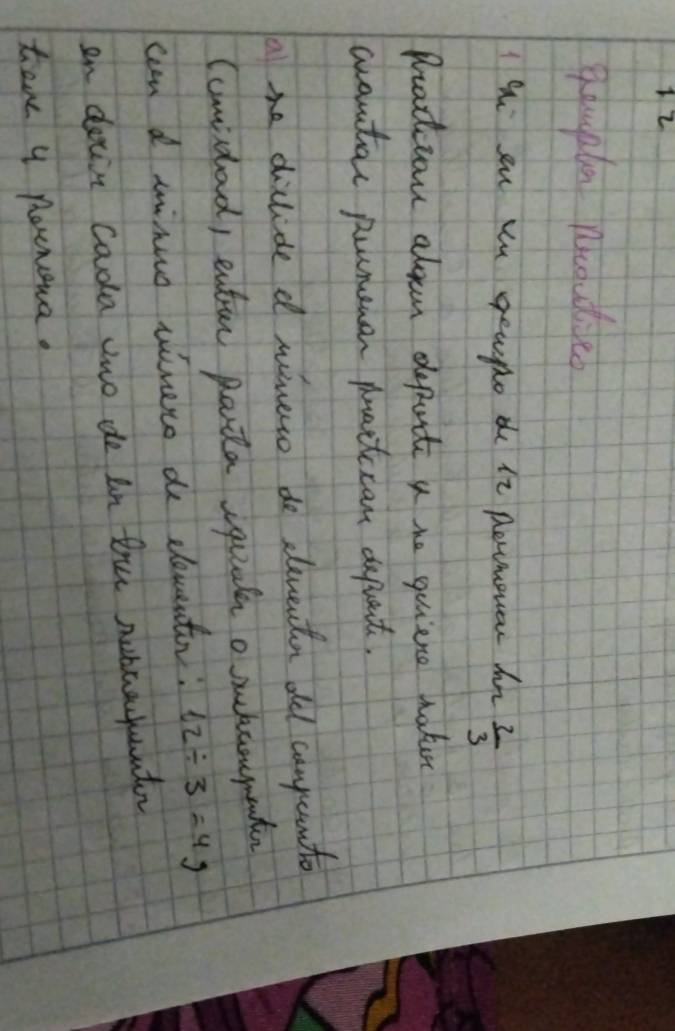 12
Ejemplos Prácticos
1 Si en un grupo de 12 personas los 2/3
Practican algun deporte y se quiere saber
cuantas personas practican deporte.
a) se divide el número de elementos del conjunto
(unidad) entre partes iguales o subconjuntos
con el mismo número de elementos: 12 ÷ 3 = 4,
es decir cada uno de los tres subconjuntos
tiene 4 persona.